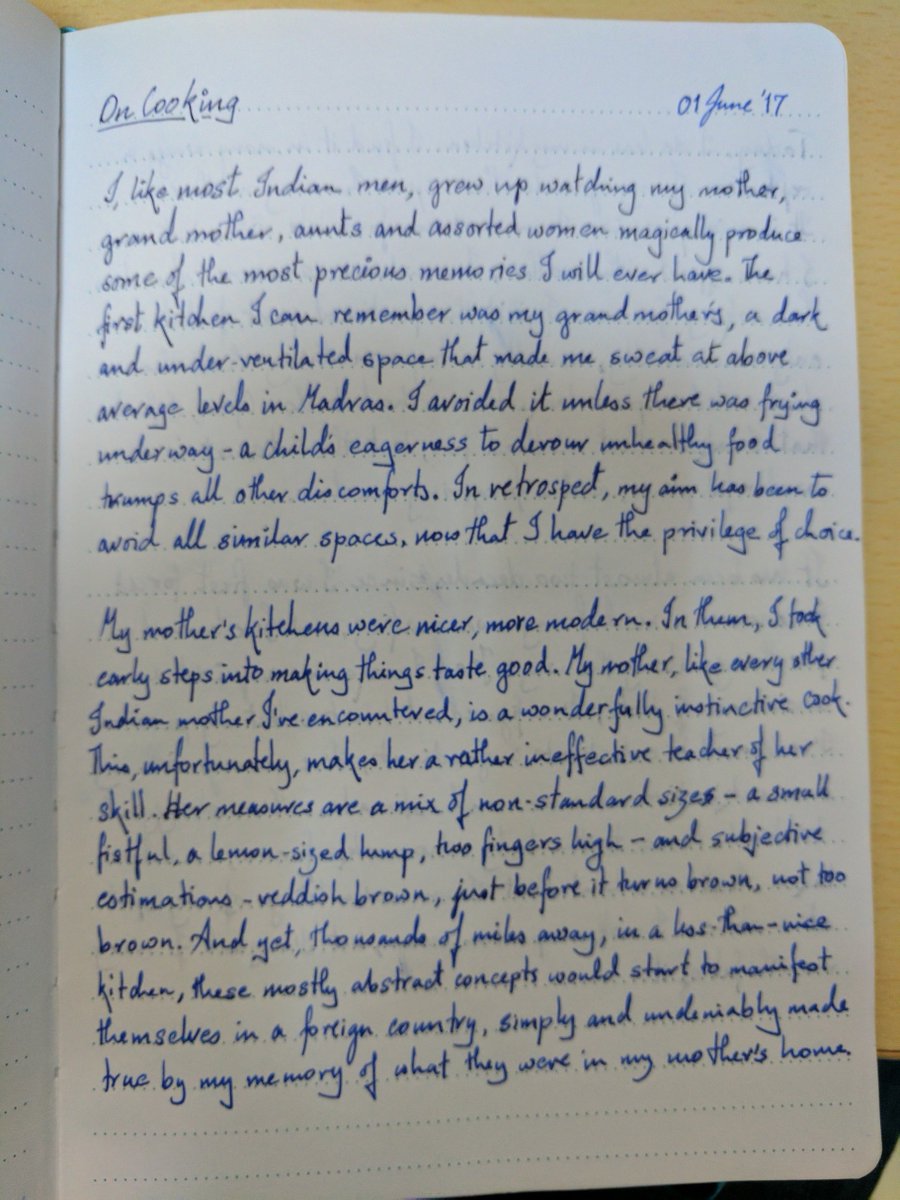 On Cooking
01 June '17
I, like most Indian men, grew up watching my mother,
grand mother, aunts and assorted women magically produce
some of the most precious memories I will ever have. The
first kitchen I can remember was my grandmother's, a dark
and under-ventilated space that made me sweat at above
average levels in Madras. I avoided it unless there was frying
underway - a child's eagerness to devour unhealthy food
trumps all other discomforts. In retrospect, my aim has been to
avoid all similar spaces, now that I have the privilege of choice.
My mother's kitchens were nicer, more modern. In them, I took
early steps into making things taste good. My mother, like every other
Indian mother I've encountered, is a wonderfully instinctive cook.
This, unfortunately, makes her a rather ineffective teacher of her
skill. Her measures are a mix of non-standard sizes - a small
fistful, a lemon-sized lump, two fingers high - and subjective
estimations - reddish brown, just before it turns brown, not too
brown. And yet, thousands of miles away, in a less-than-nice
kitchen, these mostly abstract concepts would start to manifest
themselves in a foreign country, simply and undeniably made
true by my memory of what they were in my mother's home.